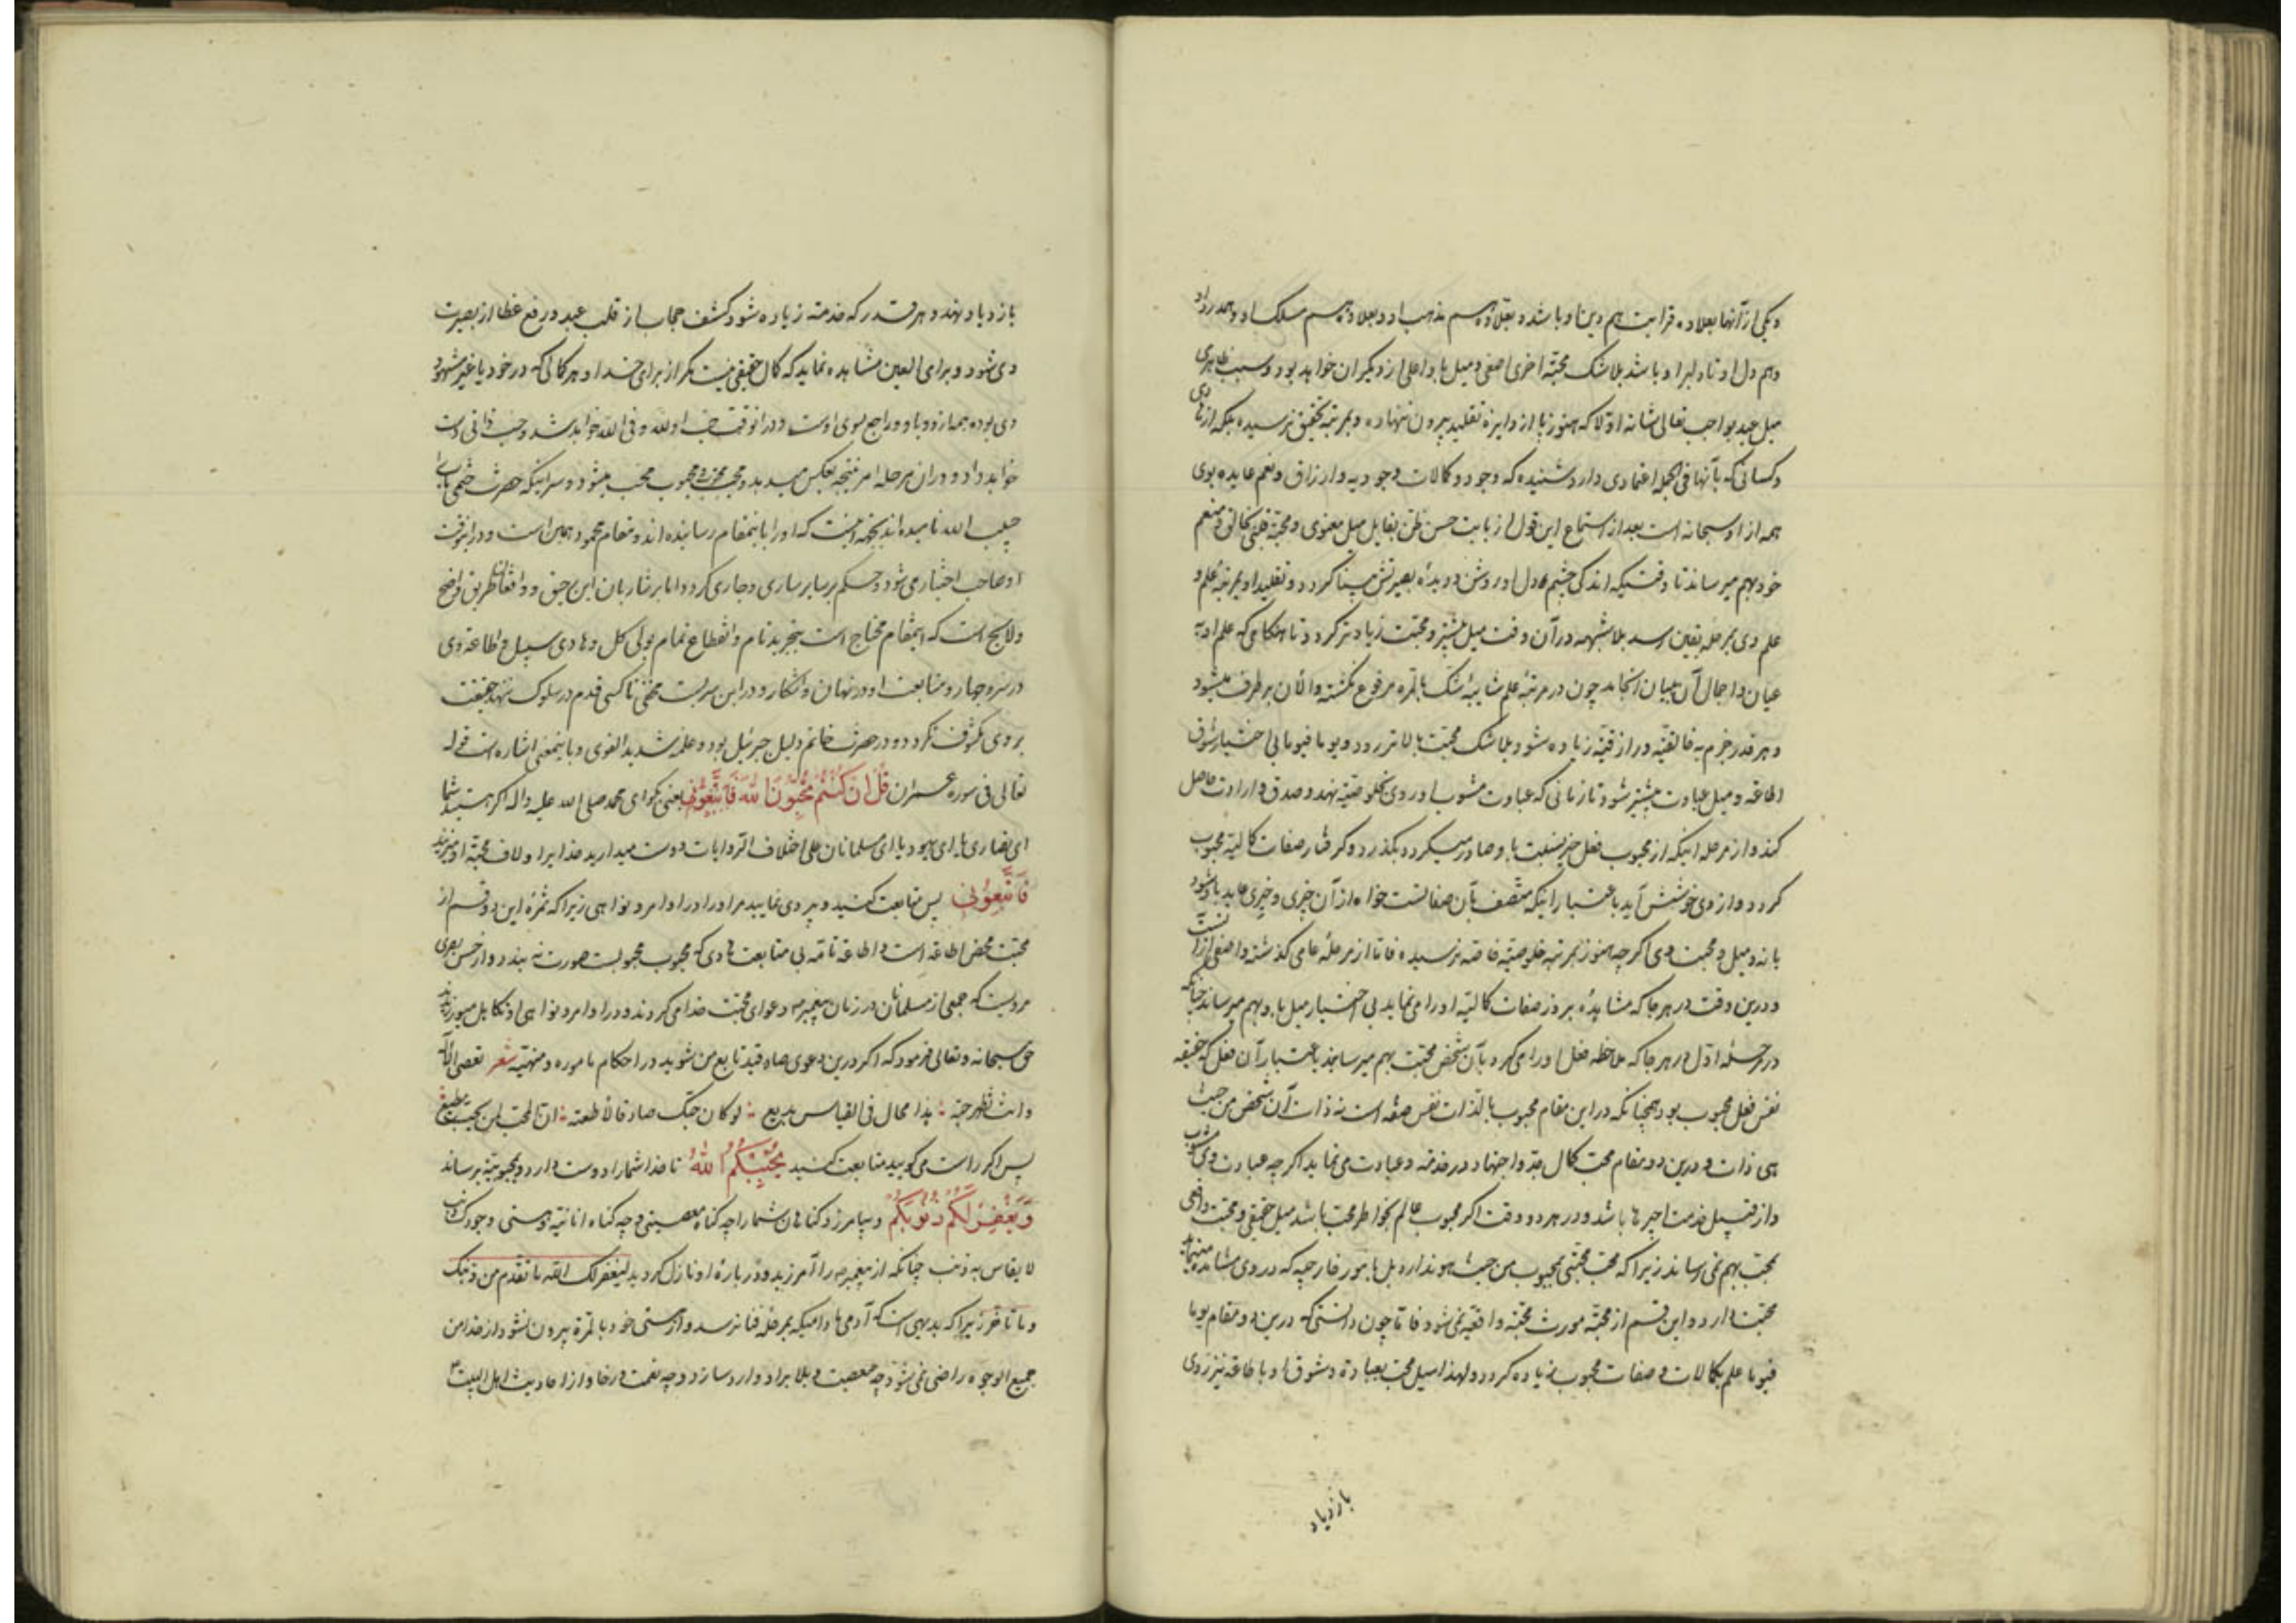 و یکی از آنها بعلاوه قرابت هم دین او باشد و بعلاوه هم مذهب او و بعلاوه هم مسلک او و همدرد او
و هم دل او تا دلبر او باشد بلاشک محبة اخری اصفی و میل با و اعلی از دیگران خواهد بود و سبب ظاهری
میل عبد بواجب تعالی شانه اولا که هنوز پا از دایره تقلید بیرون ننهاده و بمرتبه تحقیق نرسیده بلکه از
و کسانی که بآنها فی الجمله اعتمادی دارد شنیده که وجود و کمالات وجودیه و ارزاق و نعم عایده بوی
همه از او سبحانه است بعد از استماع این قول از بابت حسن ظن بقایل میل معنوی و محبة قلبی بخالق و منعم
خود بهم میرساند تا وقتیکه اندکی چشم دل او روشن و دیده بصیرتش بینا گردد و تقلید او بمرتبه علم و
علم وی بمرحله یقین رسد بلاشبهه در آن وقت میل بیشتر و محبت زیادتر گردد تا هنگامی که علم او به
عیان و اجمال آن به بیان انجامد چون در مرتبه علم شایبه شک بالمره مرفوع نگشته و الآن برطرف میشود
و هر قدر جزم به خالقیه و رازقیه زیاده شود بلاشک محبت بالاتر رود و یوما فیوما بی اختیار شوق
اطاعه و میل عبادت بیشتر شود تا زمانی که عبادت مشوب او روی بخلوصیة نهد و صدق و ارادت حاصل
کند و از مرحله اینکه از محبوب فعل خیر نسبت باو صادر میگردد بگذرد و گرفتار صفات کمالیه محبوب
گردد و از وی خوشش آید باعتبار اینکه متصف بآن صفاتست خواه از آن خیری و خیری عاید باو شود
یا نه و میل و محبت وی اگر چه هنوز بمرتبه خلوصیة خاصه نرسیده فاما از مرحله عامی گذشته و اصفی از آنست
و درین وقت در هر جا که مشاهده بروز صفات کمالیه او را می نماید بی اختیار میل باو بهم میرساند چنانکه
در مرحله اول در هر جا که ملاحظه فعل او را می کرد بآن شخص محبت بهم میرساند باعتبار آن فعل که حقیقه
نفس فعل محبوب بود همچنانکه در این مقام محبوب بالذات نفس صفه است نه ذات آن شخص من حیث
هی ذات و درین دو مقام محب کمال جد و اجتهاد در خدمه و عبادت می نماید اگر چه عبادت وی مشوب
و از قبیل خدمت اجیرها باشد و در هر دو وقت اگر محبوب عالم بخواطر محب باشد میل حقیقی و محبت واقعی
بمحب بهم نمی رساند زیرا که محب محبتی بمحبوب من حیث هو ندارد بل بامور خارجیه که در وی مشاهده مینماید
محبت دارد و این قسم از محبة مورث محبة واقعیه نمی شود فاما چون دانستی که درین دو مقام یوما
فیوما علم بکمالات و صفات محبوب زیاده گردد و لهذا میل محب بعبادة و شوق او باطاعة نیز روی
بازدیاد
بازدیاد نهد و هر قدر که خدمته زیاده شود کشف حجاب از قلب عبد و رفع غطا از بصیرت
وی شود و برای العین مشاهده نماید که کمال حقیقی نیست مگر از برای خدا و هر کمالی که در خود یا غیر مشهود
وی بوده همه از و و باو و راجع بسوی اوست و در انوقت حب او لله و فی الله خواهد شد و حب ذاتی دست
خواهد داد و در ان مرحله امر نتیجه بعکس میدهد و محب محبوب و محبوب محب میشود و سر اینکه حضرت ختمی مآب را
حبیب الله نامیده اند بجهه اینست که او را باینمقام رسانیده اند و مقام محمود همین است و در انوقت
او صاحب اختیار می شود و حکم بر سایر ساری و جاری گردد اما بر شاربان این رحیق و واقفان طریق واضح
ولایح است که اینمقام محتاج است بتجرید تام و انقطاع تمام بولی کل و هادی سبیل و اطاعة وی
در سر و جهار و متابعت او در نهان و آشکار و در این سریست مخفی تا کسی قدم در سلوک ننهد حقیقت
بر وی مکشوف نگردد و در حضرت خاتم دلیل جبرئیل بود و علمه شدید القوی و باینمعنی اشاره است قوله
تعالی فی سوره عمران قُلْ اِنْ كُنْتُمْ تُحِبُّونَ اللهَ فَاتَّبِعُونِي یعنی بگو ای محمد صلی الله علیه و اله اگر هستید شما
ای نصاری یا ای یهود یا ای مسلمانان علی اختلاف الروایات دوست میدارید خدایرا و لاف محبة او میزنید
فَاتَّبِعُونِي پس متابعت کنید و پیروی نمایید مرا و را در اوامر و نواهی زیرا که ثمره این دو قسم از
محبت محض اطاعه است و اطاعه تامه بی متابعت هادی که محبوب محبوبست صورت نه بندد و از حسن بصری
مرویست که جمعی از مسلمانان در زمان پیغمبر ص دعوای محبت خدا می کردند و در اوامر و نواهی او تکاهل میورزیدند
حق سبحانه و تعالی فرمود که اگر درین دعوی صادقید تابع من شوید در احکام ماموره و منهیه شعر تعصی الاله
وانت تظهر حبه هذا محال فی القیاس بدیع لو کان حبک صادقا لاطعته ان المحب لمن یحب مطیع
پس اگر راست می گویید متابعت کنید يُحْبِبْكُمُ اللهُ تا خدا شما را دوست دارد و بمحبوبیة برساند
وَيَغْفِرْ لَكُمْ ذُنُوبَكُمْ و بیامرزد گناهان شما را چه گناه معصیتی و چه گناه انانیه و هستی وجودک ذنب
لا یقاس به ذنب چنانکه از پیغمبر ص را آمرزید و در باره او نازل گردید لیغفر لک الله ما تقدم من ذنبک
و ما تاخر زیرا که بدیهی است که آدمی مادامیکه بمرحله فنا نرسد و از هستی خود بالمره بیرون نشود از خدا من
جمیع الوجوه راضی نمی شود چه معصیت و بلا بر او وارد سازد و چه نعمت و رخا و از احادیث اهل البیت ع